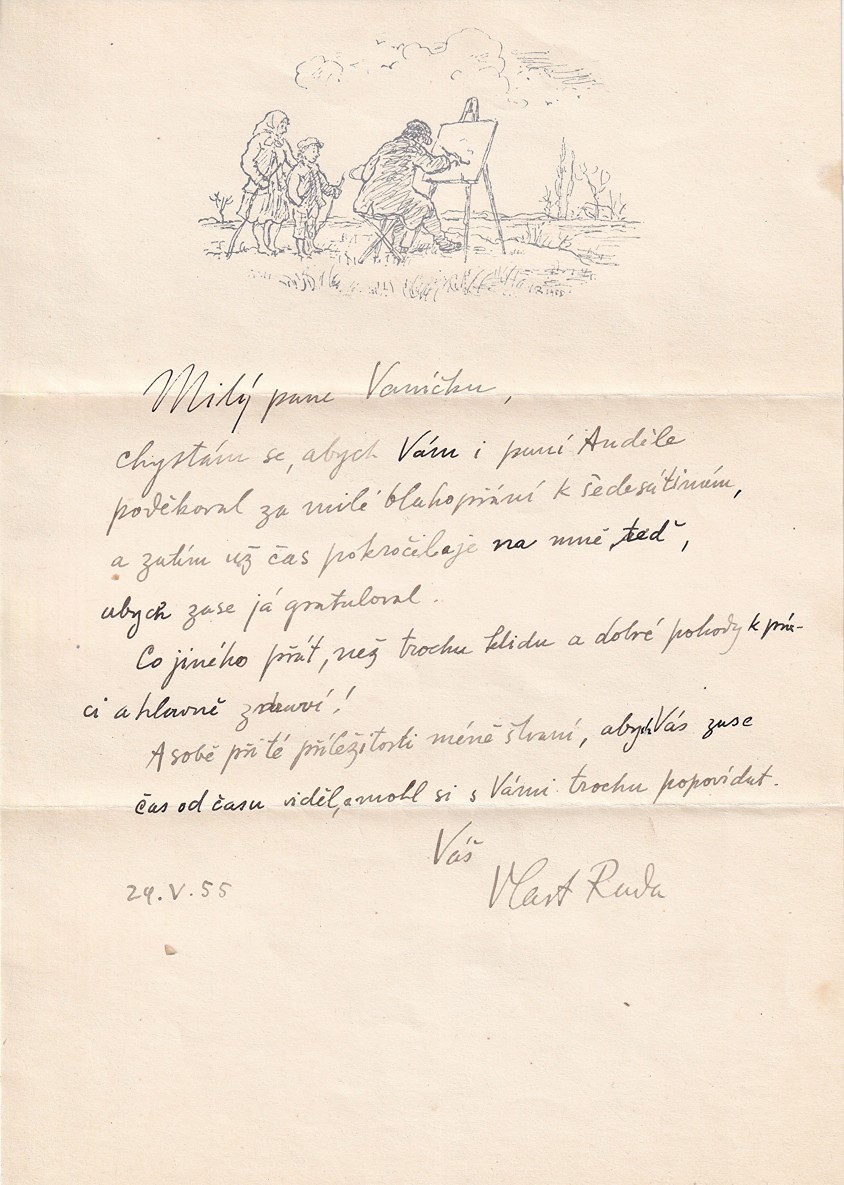 Milý pane Vaníčku,
chystám se, abych Vám i paní Anděle
poděkoval za milé blahopřání k šedesátinám,
a zatím už čas pokročil a je na mně, teď,
abych zase já gratuloval.
Co jiného přát, než trochu klidu a dobré pohody k prá-
ci a hlavně zdraví!
A sobě při té příležitosti méně štvaní, abych Vás zase
čas od času viděl, a mohl si s Vámi trochu popovídat.
Váš
29.V.55 Vlast Rada